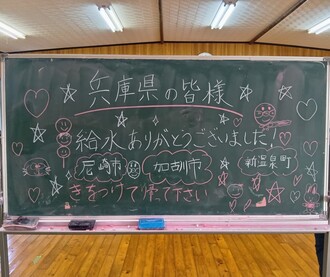 兵庫県の皆様
給水ありがとうございました!
尼崎市 加古川市 新温泉町
きをつけて帰て下さい